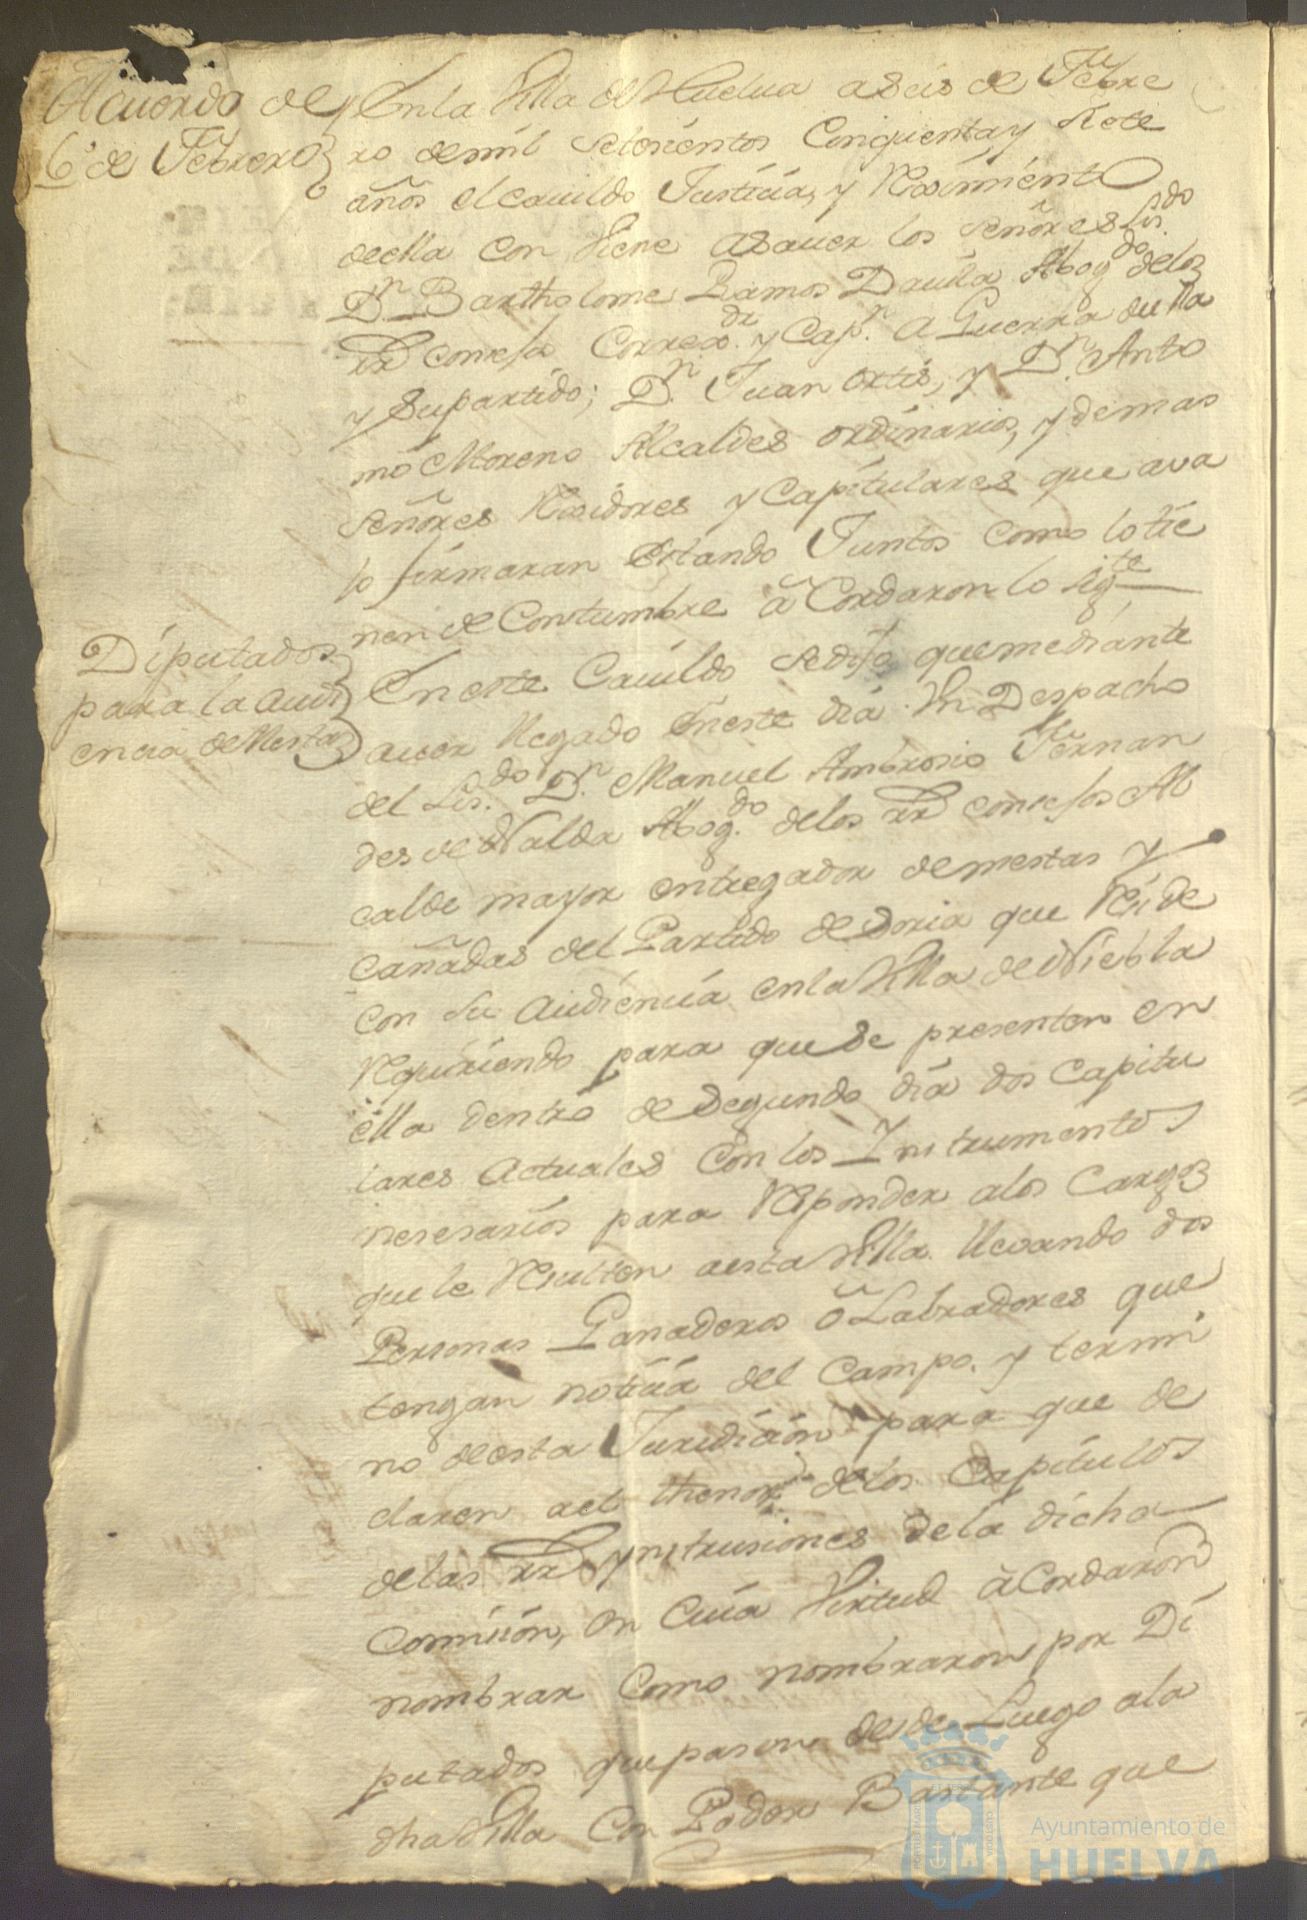 Acuerdo de
6 de Febrero
En la Villa de Huelua a seis de Febre
ro de mil setesientos Cinquenta y siete
años el cauildo Justicia, y Reximiento
de ella con viene asauer los señores Lis.do
D.n Bartholome Ramos Dauila Abog.do de los
RR consejos Correx.or y Cap.n a Guerra de ella
y su partido; D.n Juan Ortis, y D.n Anto
nio Moreno Alcaldes ordinarios, y demas
señores Rexidores y Capitulares que ava
jo firmaran estando Juntos como lo tie
nen de Contumbre aCordaron lo sig.te
Diputados
para la audi
encia de Mesta
En este Cauildo se dijo que mediante
auer llegado en este dia Vn Despacho
del Lis.do D.n Manuel Ambrosio Fernan
des de Nalda Abog.do de los RR consejos Al
calde mayor entregador de mestas y
cañadas del Partido de Soria que Reside
con su audiencia en la Villa de Niebla
Requiriendo para que se presenten en
ella dentro de segundo dia dos Capitu
lares actuales con los Instrumentos
nesesarios para Responder a los Cargos
que le Resulten a esta Villa lleuando dos
Personas Ganaderos o Labradores que
tengan noticia del Campo. y termi
no de esta Juridicion para que de
claren a el thenor de los Capitulos
de las RR ynstrusiones de la dicha
Comision, en Cuia Virtud aCordaron
nombrar Como nombraron por Di
putados que pasen desde Luego a la
dha Villa Con Poder Bastante que
Ayuntamiento de
HUELVA